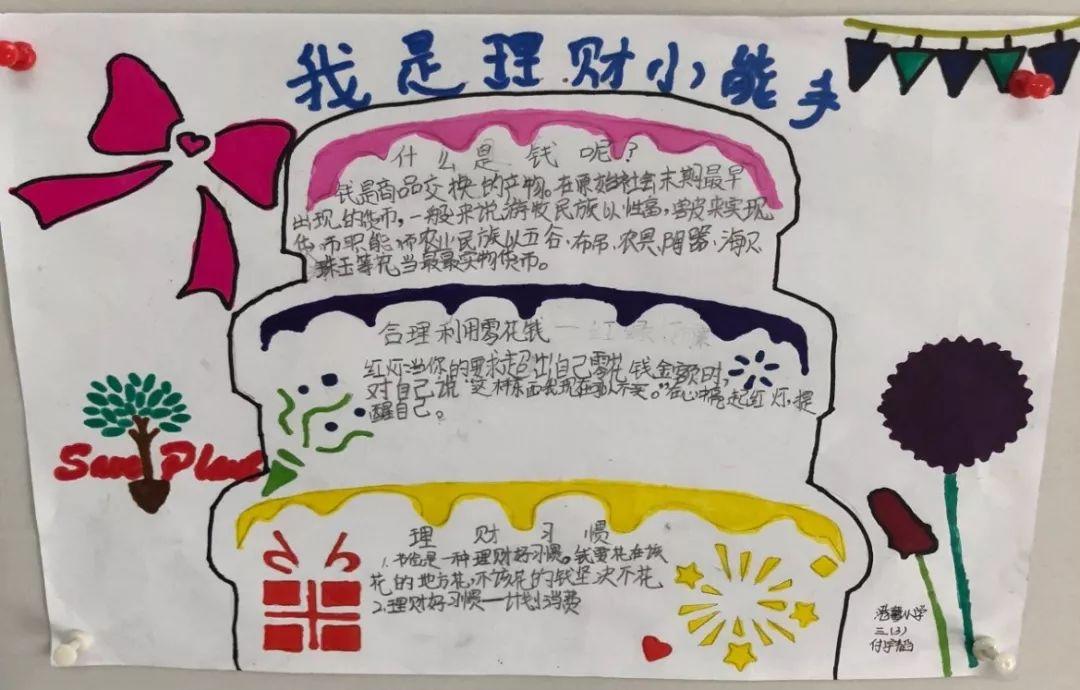 我是理财小能手
什么是钱呢？
钱是商品交换的产物。在原始社会末期最早
出现的货币，一般来说游牧民族以牲畜，兽皮来实现
货币职能，而农业民族以五谷、布帛、农具、陶器、海贝
珠玉等充当最最实物货币。
合理利用零花钱一红绿
红灯：当你的要求超出自己零花钱金额时，
对自己说“这种东西我现在可以不买。”在心中亮起红灯，提
醒自己。
Save Plant
理财习惯
1.节俭是一种理财好习惯。钱要花在该
花的地方花，不该花的钱坚决不花
2.理财好习惯—计划消费
小学
三（3）
付宇